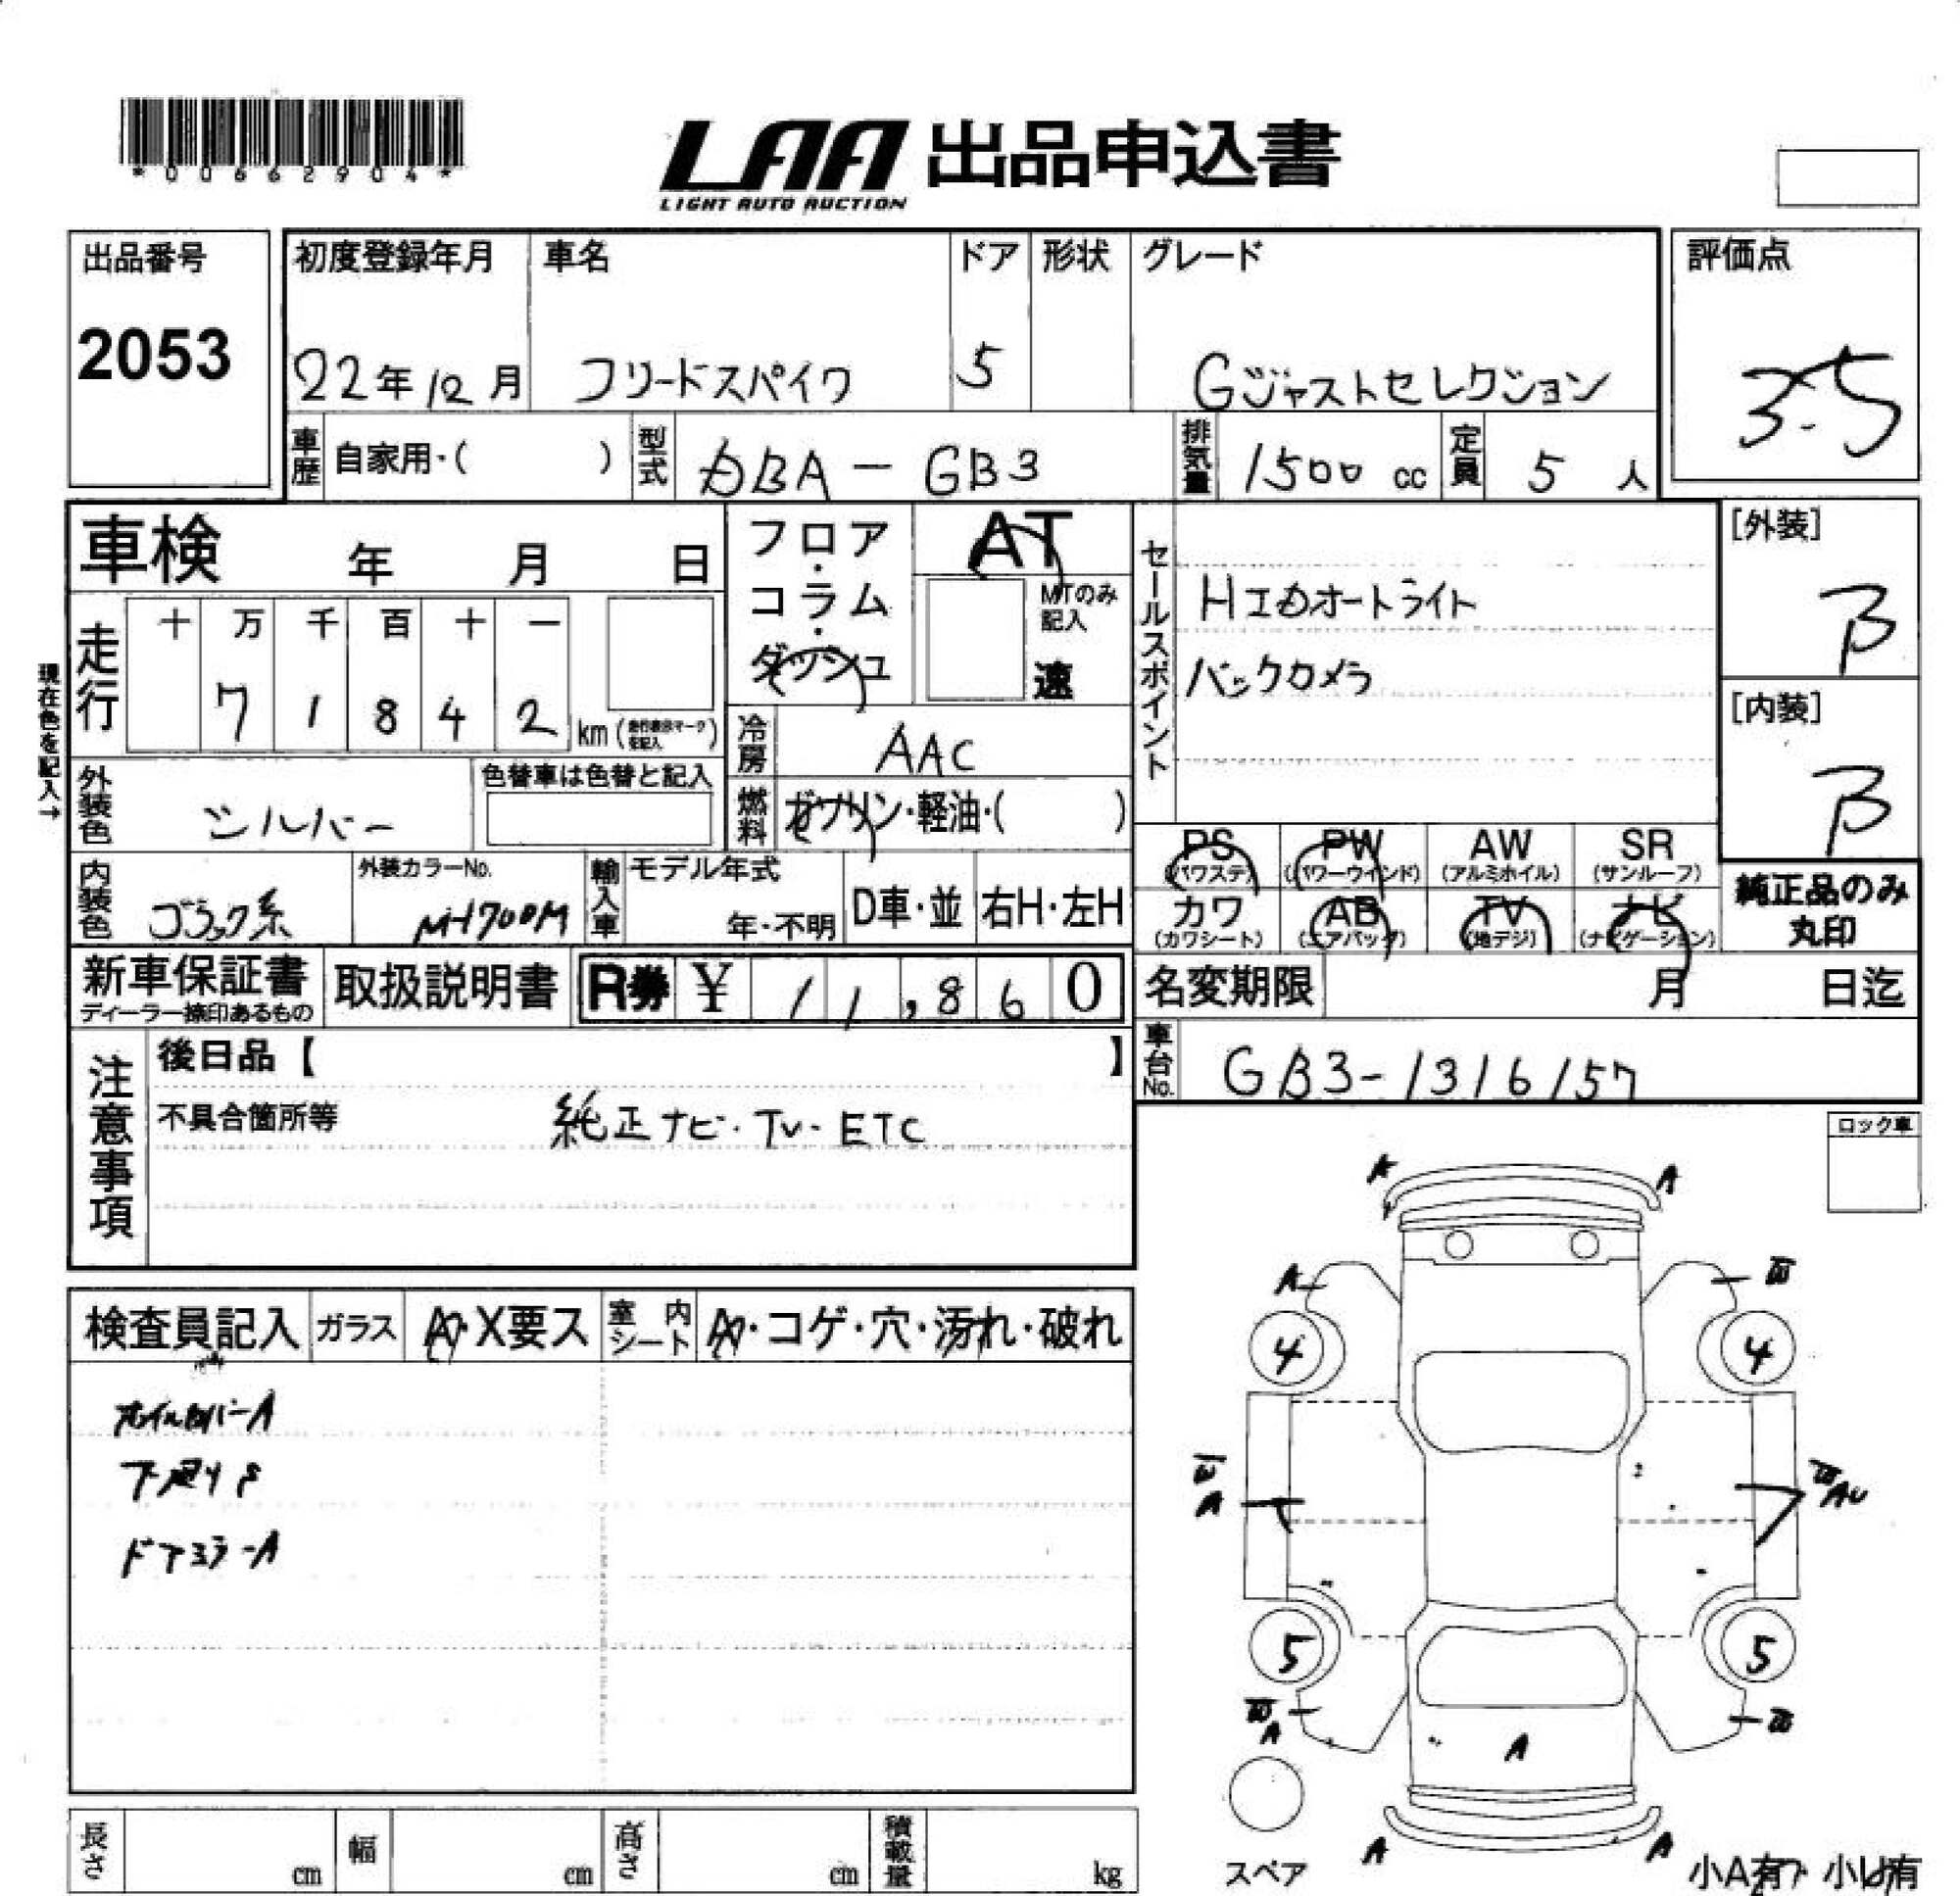 *00662904*
LAA 出品申込書
LIGHT AUTO AUCTION
出品番号
2053
初度登録年月
22年12月
車名
フリードスパイク
ドア
5
形状
グレード
Gジャストセレクション
評価点
3.5
車歴
自家用・( )
型式
DBA-GB3
排気量
1500 cc
定員
5 人
車検 年 月 日
フロア・コラム・ダッシュ
AT
MTのみ記入
速
セールスポイント
HIDオートライト
バックカメラ
[外装]
B
[内装]
B
現在色を記入→
走行
十 万 千 百 十 一
7 1 8 4 2 km
冷房
AAC
外装色
シルバー
色替車は色替と記入
燃料
ガソリン・軽油・( )
PS (パワステ)
PW (パワーウインド)
AW (アルミホイル)
SR (サンルーフ)
カワ (カワシート)
AB (エアバッグ)
TV (地デジ)
ナビ (ナビゲーション)
純正品のみ
丸印
内装色
ブラック系
外装カラーNo.
NH700M
輸入車
モデル年式
年・不明
D車・並
右H・左H
新車保証書
ディーラー捺印あるもの
取扱説明書
R券 ¥ 11,860
名変期限 月 日迄
車台No.
GB3-1316157
注意事項
後日品【 】
不具合箇所等
純正ナビ・TV・ETC
ロック車
検査員記入
ガラス
A・X要ス
室内シート
A・コゲ・穴・汚れ・破れ
ホイルカバーA
下廻りS
ドアミラーA
A A
A W
4 4
W
A
W
AU
5 5
W
A
W
A
A A
スペア
小A有 小U有
長さ cm
幅 cm
高さ cm
積載量 kg